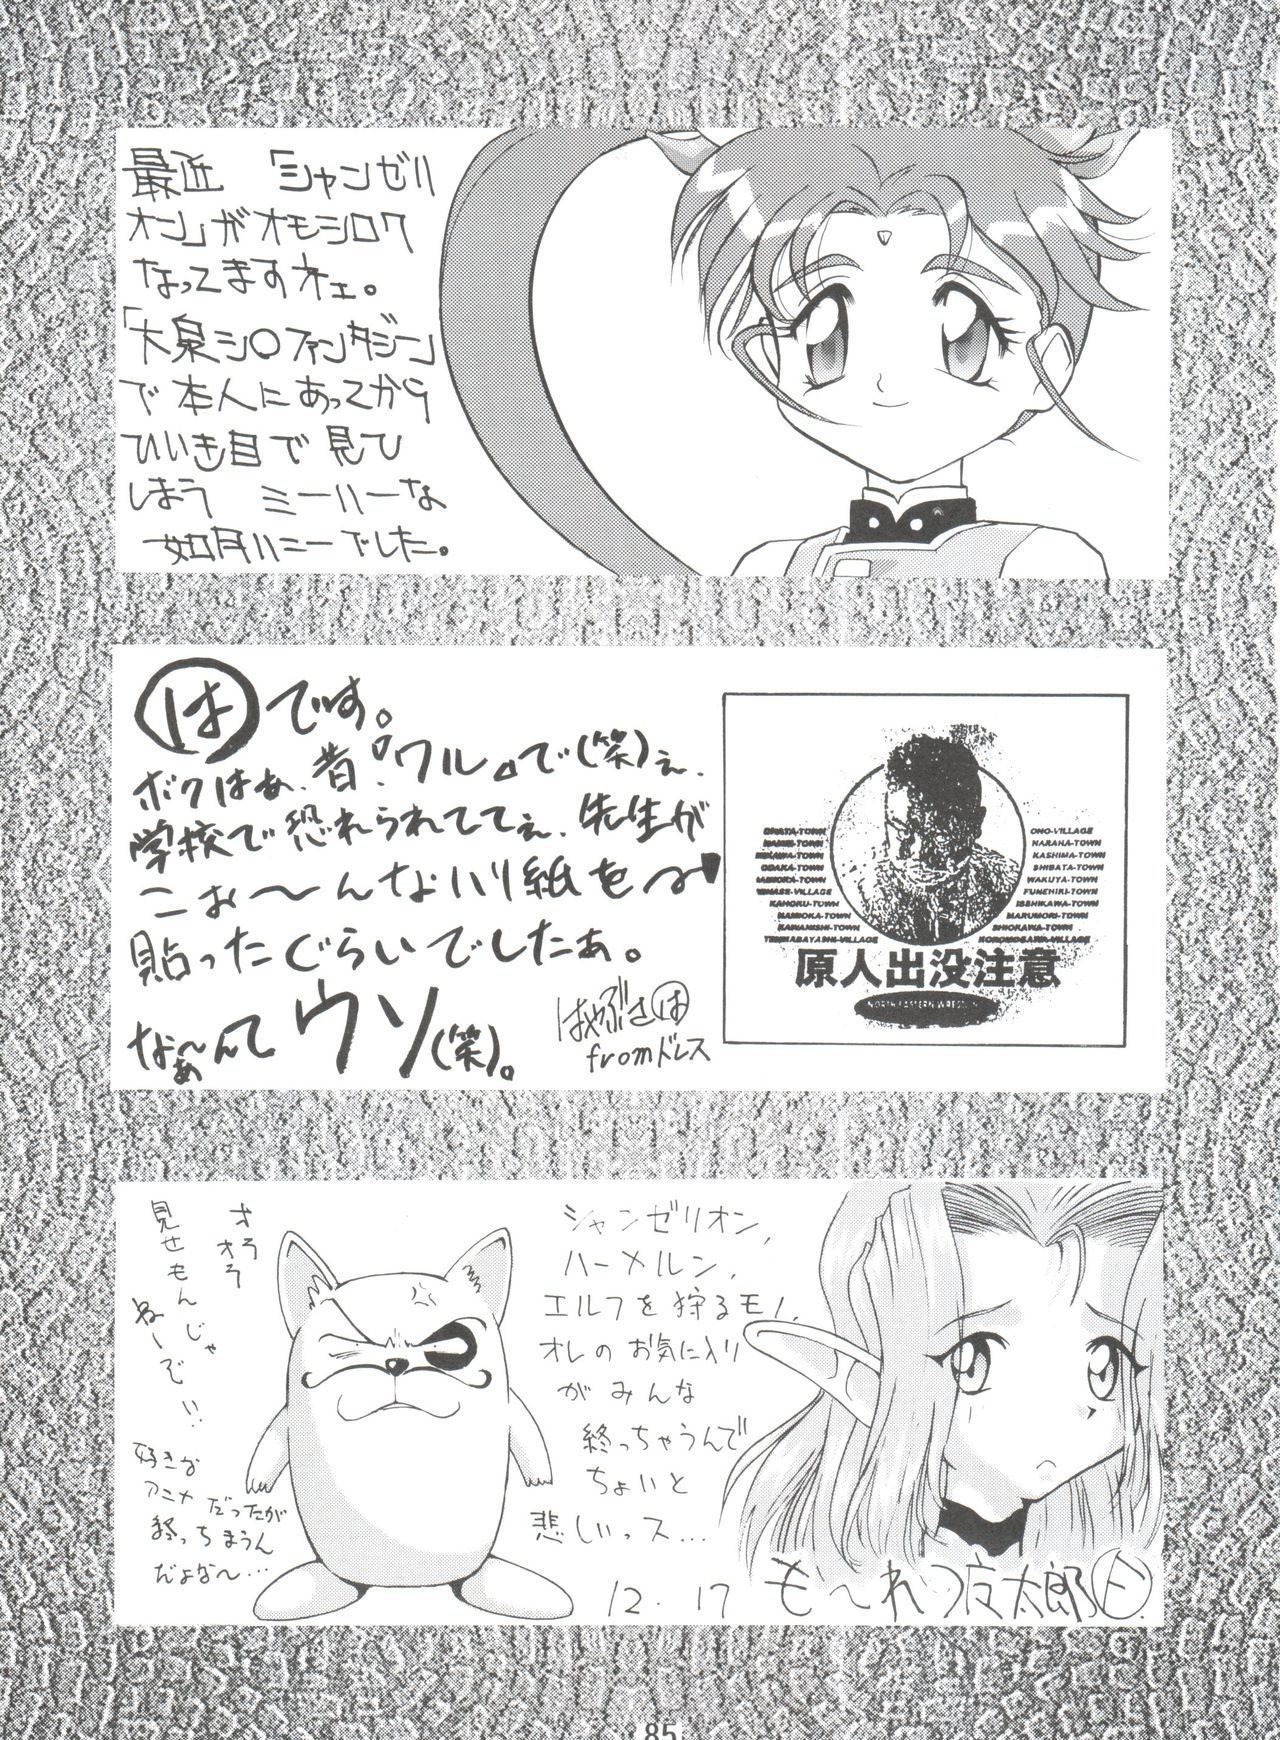 最近 「シャンゼリ
オン」がオモシロク
なってますネェ。
「大泉シ〇ファンタジー」
で本人にあってから
ひいき目で見ひ
しまう ミーハーな
如月ハニーでした。
はです。
ボクはぁ、昔『ワル』で(笑)ぇ、
学校で恐れられててぇ、先生が
こぉ〜んなハリ紙を
貼ったぐらいでしたぁ。
なぁ〜んて ウソ(笑)。
はやぶさは
fromドレス
ONO-VILLAGE
NARAHA-TOWN
KASHIMA-TOWN
ODAKA-TOWN
SHIBATA-TOWN
WAKUYA-TOWN
FUNEHIKI-TOWN
KAHOKU-TOWN
ISSHIKAWA-TOWN
NAMIOKA-TOWN
MARUMORI-TOWN
KAWANISHI-TOWN
SHIOKAWA-TOWN
TENNABAYASHI-VILLAGE
原人出没注意
オラオラ
見せもんじゃ
ねーぞ!!
好きな
アニメだったが
終っちまうん
だよな〜…
シャンゼリオン、
ハーメルン、
エルフを狩るモノ、
オレのお気に入り
がみんな
終っちゃうんで
ちょいと
悲しいっス…
12.17
も〜れつ夜太郎
85